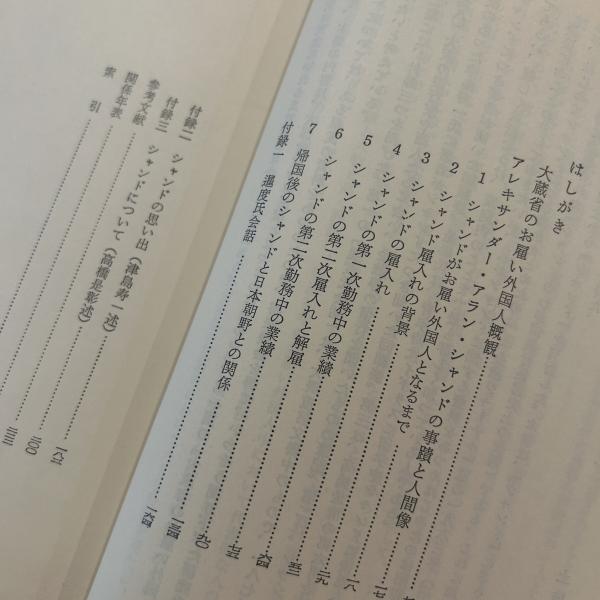 はしがき
大蔵省のお雇い外国人概観
アレキサンダー・アラン・シャンドの事蹟と人間像 一七
1 シャンドがお雇い外国人となるまで 一八
2 シャンド雇入れの背景 二九
3 シャンドの雇入れ 五三
4 シャンドの第一次勤務中の業績 六四
5 シャンドの第二次雇入れと解雇 七五
6 シャンドの第二次勤務中の業績 九〇
7 帰国後のシャンドと日本朝野との関係 一三四
付録一 暹度氏会話 一六四
付録二 シャンドの思い出(津島寿一述) 一八五
付録三 シャンドについて(高橋是彰述) 二〇〇
参考文献
関係年表
索引